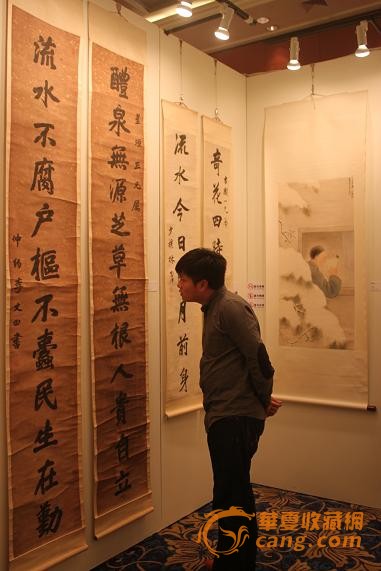 奇花四
流水今日
月前身
少穆林
醴泉無源芝草無根人貴自立
流水不腐户樞不蠹民生在勤
仲約李文田書
華夏收藏網
cang.com